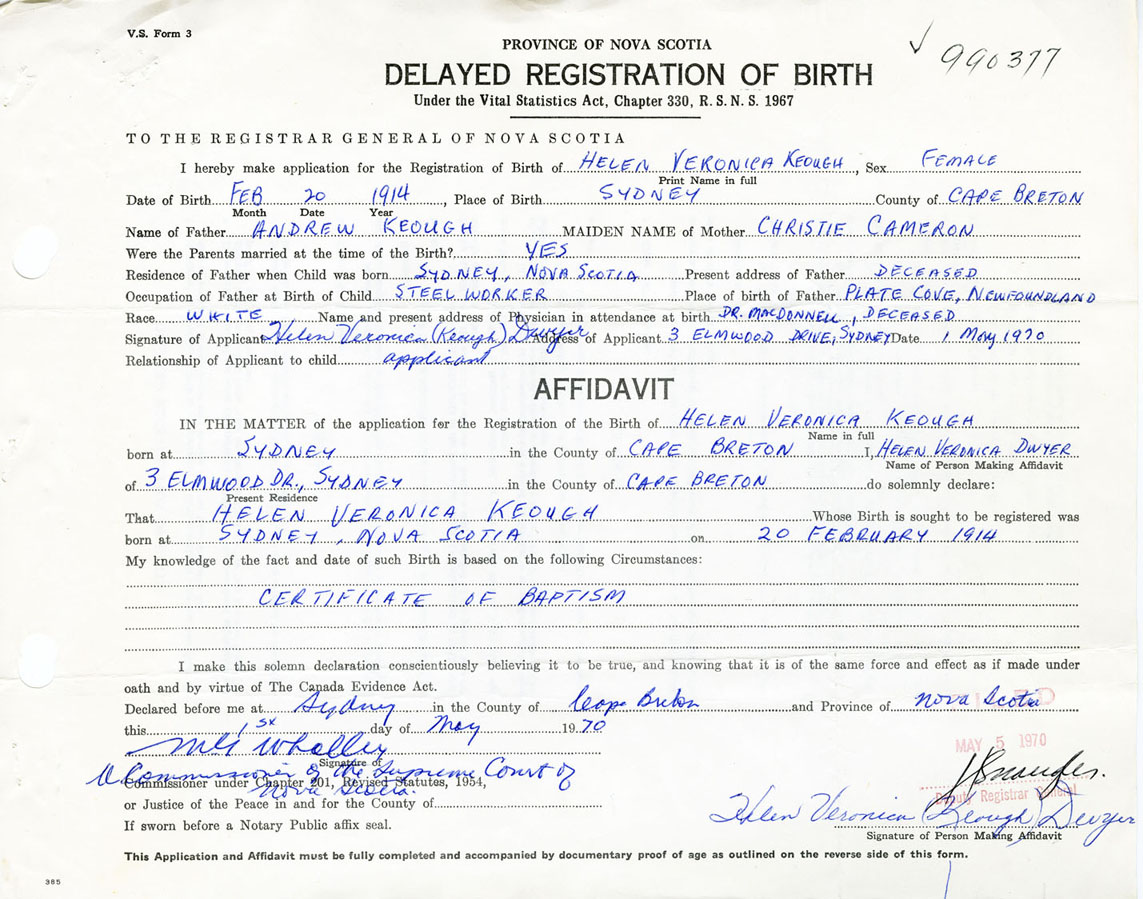 V.S. Form 3
990377
PROVINCE OF NOVA SCOTIA
DELAYED REGISTRATION OF BIRTH
Under the Vital Statistics Act, Chapter 330, R. S. N. S. 1967
TO THE REGISTRAR GENERAL OF NOVA SCOTIA
I hereby make application for the Registration of Birth of HELEN VERONICA KEOUGH, Sex FEMALE
Print Name in full
Date of Birth FEB 20 1914, Place of Birth SYDNEY County of CAPE BRETON
Month Date Year
Name of Father ANDREW KEOUGH MAIDEN NAME of Mother CHRISTIE CAMERON
Were the Parents married at the time of the Birth? YES
Residence of Father when Child was born SYDNEY, NOVA SCOTIA Present address of Father DECEASED
Occupation of Father at Birth of Child STEEL WORKER Place of birth of Father PLATE COVE, NEWFOUNDLAND
Race WHITE Name and present address of Physician in attendance at birth DR. MACDONNELL, DECEASED
Signature of Applicant Helen Veronica (Keough) Dwyer Address of Applicant 3 ELMWOOD DRIVE, SYDNEY Date 1 May 1970
Relationship of Applicant to child applicant
AFFIDAVIT
IN THE MATTER of the application for the Registration of the Birth of HELEN VERONICA KEOUGH
Name in full
born at SYDNEY in the County of CAPE BRETON I, HELEN VERONICA DWYER
Name of Person Making Affidavit
of 3 ELMWOOD DR., SYDNEY in the County of CAPE BRETON do solemnly declare:
Present Residence
That HELEN VERONICA KEOUGH Whose Birth is sought to be registered was
born at SYDNEY, NOVA SCOTIA on 20 FEBRUARY 1914
My knowledge of the fact and date of such Birth is based on the following Circumstances:
CERTIFICATE OF BAPTISM
I make this solemn declaration conscientiously believing it to be true, and knowing that it is of the same force and effect as if made under
oath and by virtue of The Canada Evidence Act.
Declared before me at Sydney in the County of Cape Breton and Province of Nova Scotia
this 1st day of May 1970
MAY 5 1970
Whalley
Signature of
A Commissioner of the Supreme Court of
Nova Scotia.
Commissioner under Chapter 201, Revised Statutes, 1954,
Deputy Registrar General
or Justice of the Peace in and for the County of
Helen Veronica (Keough) Dwyer
If sworn before a Notary Public affix seal.
Signature of Person Making Affidavit
This Application and Affidavit must be fully completed and accompanied by documentary proof of age as outlined on the reverse side of this form.
385